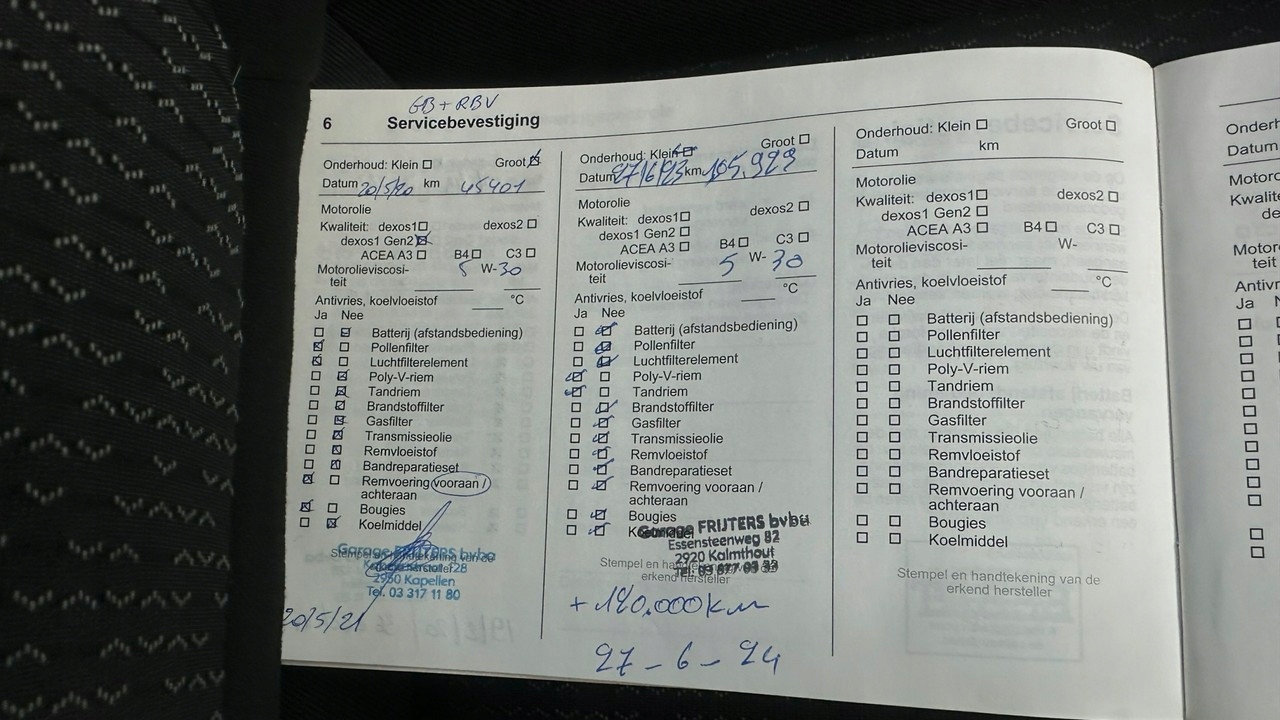 GB + RBV
6 Servicebevestiging
Onderhoud: Klein Groot
Datum 20/5/20 km 45401
Motorolie
Kwaliteit: dexos1 dexos2
dexos1 Gen2
ACEA A3 B4 C3
Motorolieviscosi- 5 W-30
teit
Antivries, koelvloeistof °C
Ja Nee
Batterij (afstandsbediening)
Pollenfilter
Luchtfilterelement
Poly-V-riem
Tandriem
Brandstoffilter
Gasfilter
Transmissieolie
Remvloeistof
Bandreparatieset
Remvoering vooraan /
achteraan
Bougies
Koelmiddel
Garage FRIJTERS bvba
2950 Kapellen
Tel. 03 317 11 80
20/5/21
Onderhoud: Klein Groot
Datum 27/6/23 km 105.923
Motorolie
Kwaliteit: dexos1 dexos2
dexos1 Gen2
ACEA A3 B4 C3
Motorolieviscosi- 5 W- 30
teit
Antivries, koelvloeistof °C
Ja Nee
Batterij (afstandsbediening)
Pollenfilter
Luchtfilterelement
Poly-V-riem
Tandriem
Brandstoffilter
Gasfilter
Transmissieolie
Remvloeistof
Bandreparatieset
Remvoering vooraan /
achteraan
Bougies
Garage FRIJTERS bvba
Essensteenweg 82
2920 Kalmthout
Stempel en
erkend hersteller
+ 120.000 km
27-6-24
Onderhoud: Klein Groot
Datum km
Motorolie
Kwaliteit: dexos1 dexos2
dexos1 Gen2
ACEA A3 B4 C3
Motorolieviscosi- W-
teit
Antivries, koelvloeistof °C
Ja Nee
Batterij (afstandsbediening)
Pollenfilter
Luchtfilterelement
Poly-V-riem
Tandriem
Brandstoffilter
Gasfilter
Transmissieolie
Remvloeistof
Bandreparatieset
Remvoering vooraan /
achteraan
Bougies
Koelmiddel
Stempel en handtekening van de
erkend hersteller
Datum
Ja